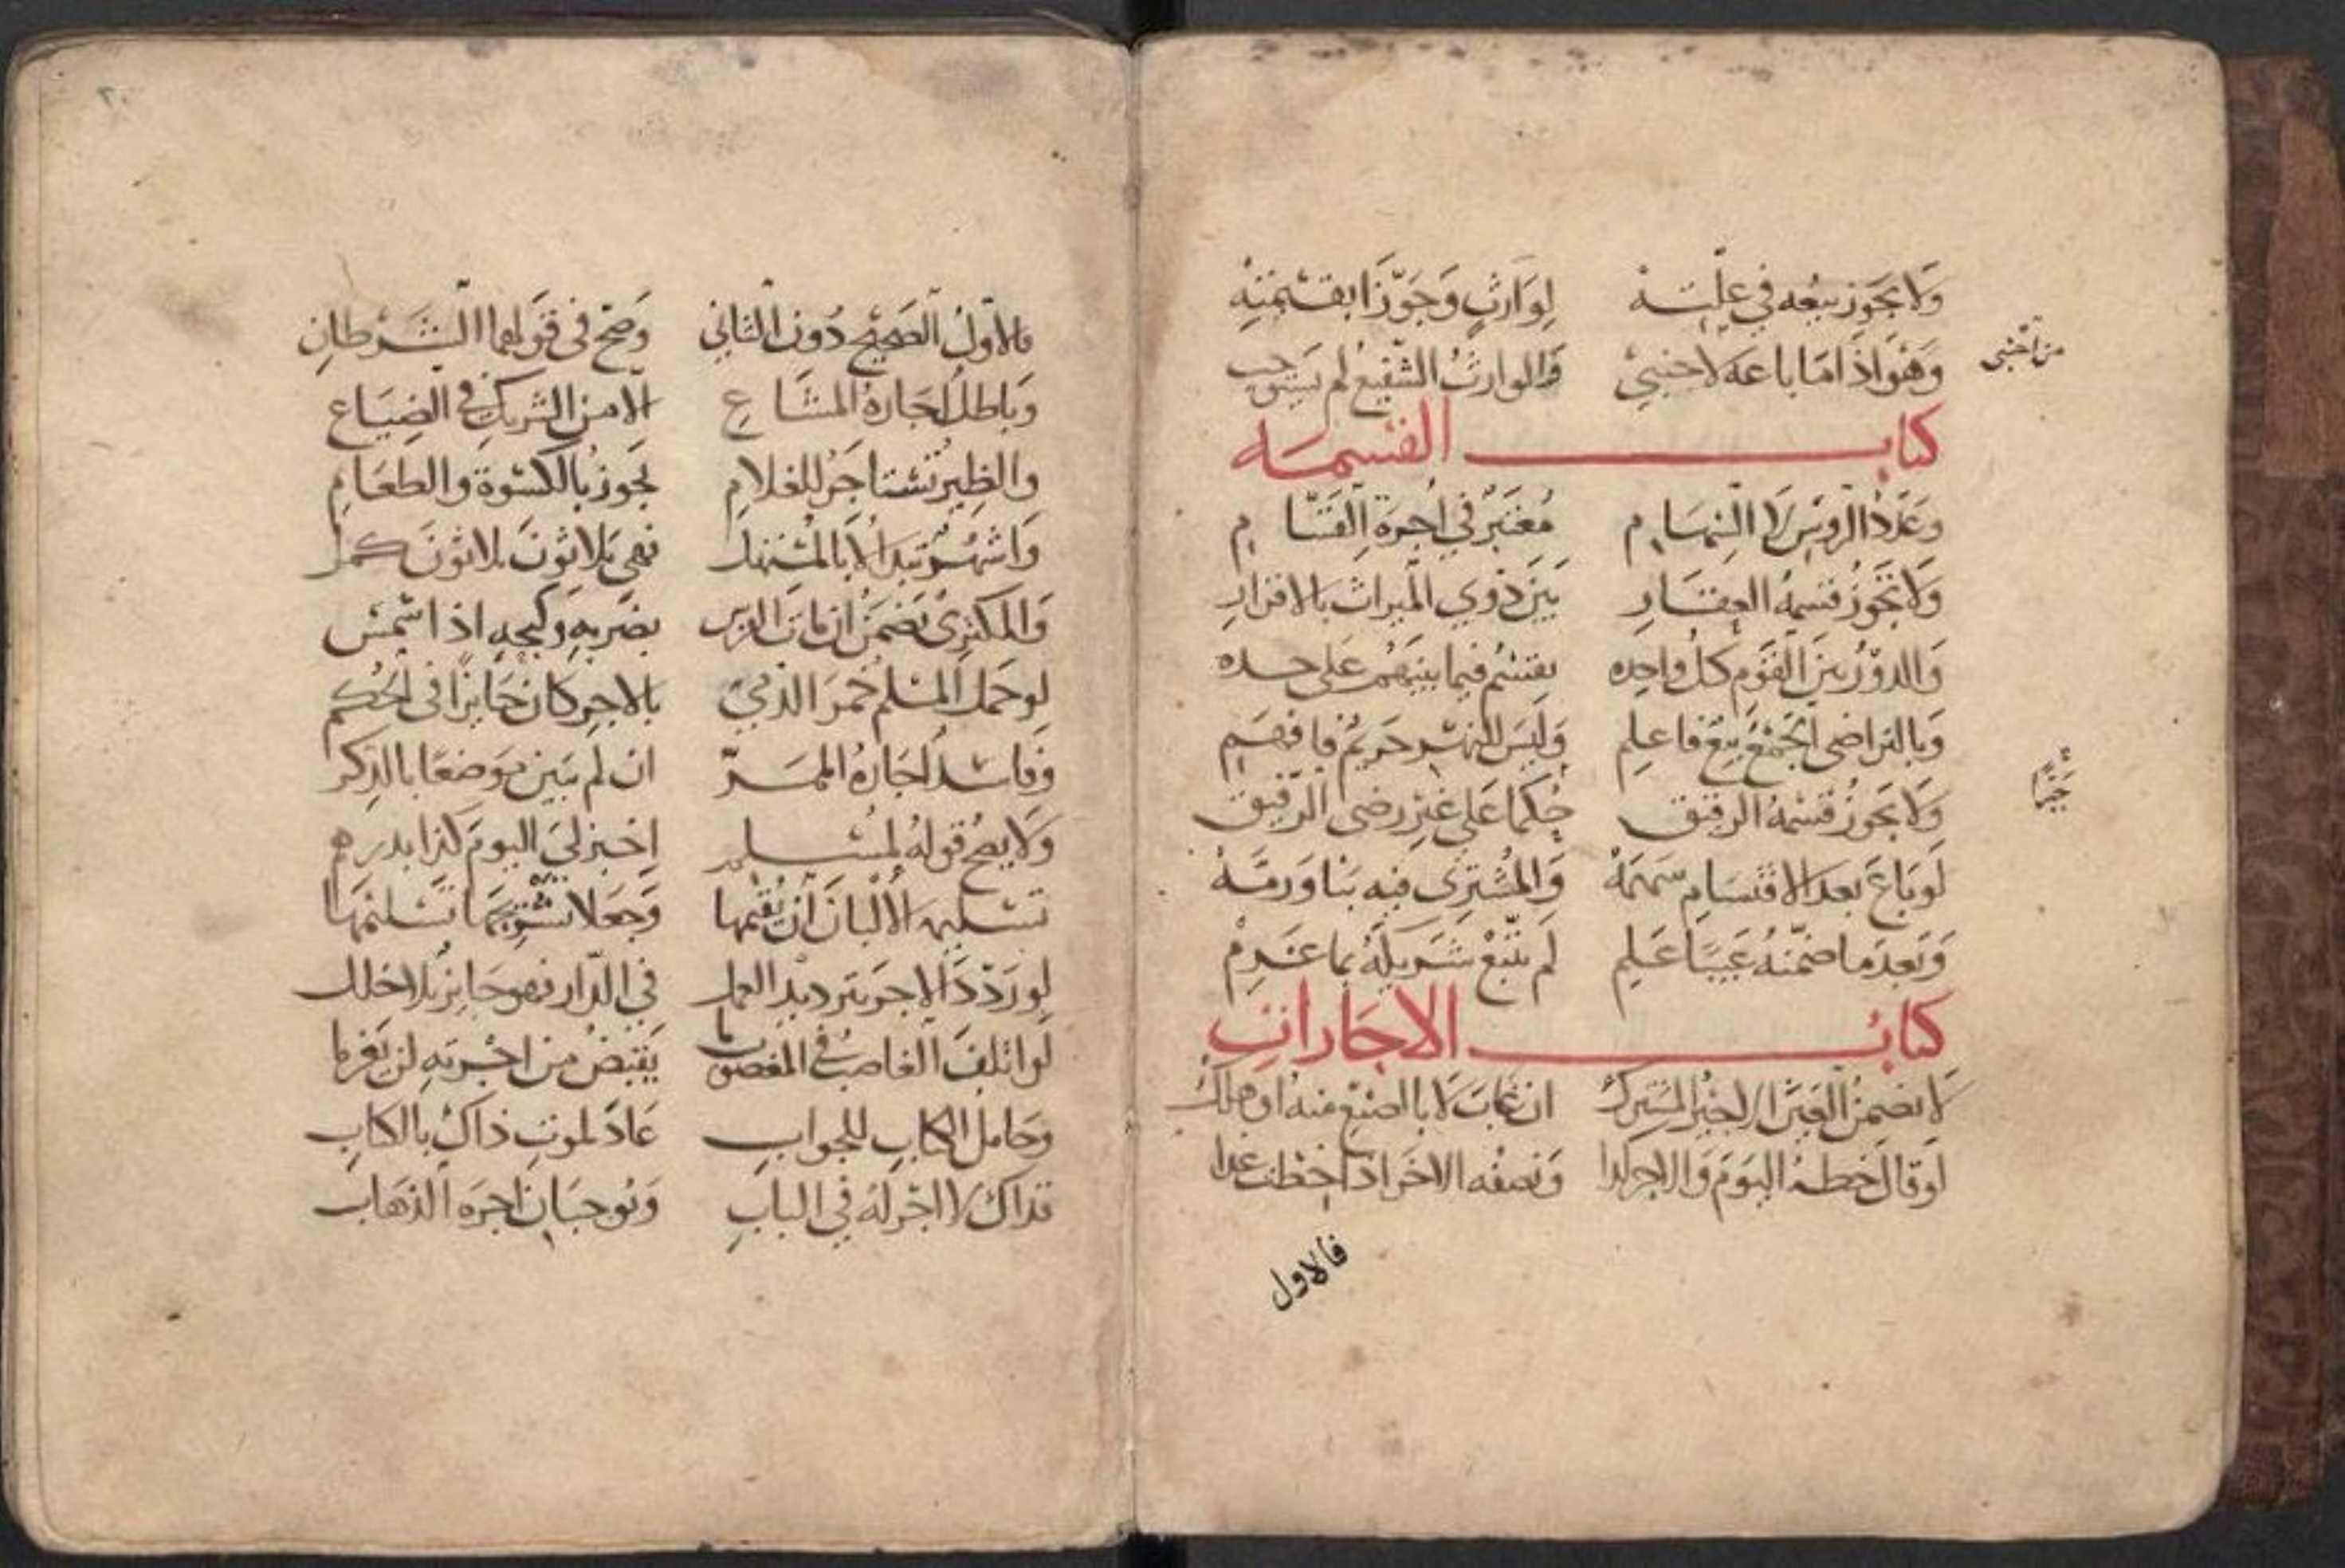 ولا يجوز بيعه في علته لوارث وجوزا بقسمته
وهو اذا ما باعه لاجنبي فالوارث الشفيع لم يستوجب
من اجنبي
كتاب القسمه
وعدد الروس لا السهام معتبر في اجرة القسام
ولا تجوز قسمة العقار بين ذوي الميراث بالاقرار
والدور بين القوم كل واحده يقتسم فيما بينهم على حده
وبالتراضي الجمع بيع فاعلم وليس للنهر حريم فافهم
ولا يجوز قسمة الرقيق حكما على غير رضى الرقيق
جبرا
لو باع بعد الاقتسام سهمه والمشتري فيه بنا ورمه
وبعد ما ضمنه عيبا علم لم يتبع شريكه بما غرم
كتاب الاجارات
لا يضمن العين الاجير المشترك ان غاب لا بالصنع منه او هلك
لو قال خطه اليوم والاجر كذا ونصفه الاخر اذا خطت غدا
فالاول
٢٠
فالاول الصحيح دون الثاني وصح في قولهما الشرطان
وباطل اجارة المشاع الا من الشريك في الضياع
والظير تستاجر للغلام يجوز بالكسوة والطعام
واشهر تبدا لا بالمستهل فهي ثلاثون ثلاثون كمل
والمكتري يضمن ان مات الفرس بضربه وكبحه اذا شمس
لو حمل المسلم خمر الذمي بالاجر كان جايزا في الحكم
وفاسد اجارة الممر ان لم يبين موضعا بالذكر
ولا يصح قوله لمسلم اخبز لي اليوم كذا بدرهم
تسليم الالبان ان يقيمها وجعلا تسليمها
لو ردد الاجر بترديد العمل في الدار فهو جايز بلا خلل
لو اتلف الغاصب في المغصوب ما يقبض من اجرته لن يغرما
وحامل الكتاب للجواب عاد لموت ذاك بالكتاب
فذاك لا اجر له في الباب ويوجبان اجرة الذهاب